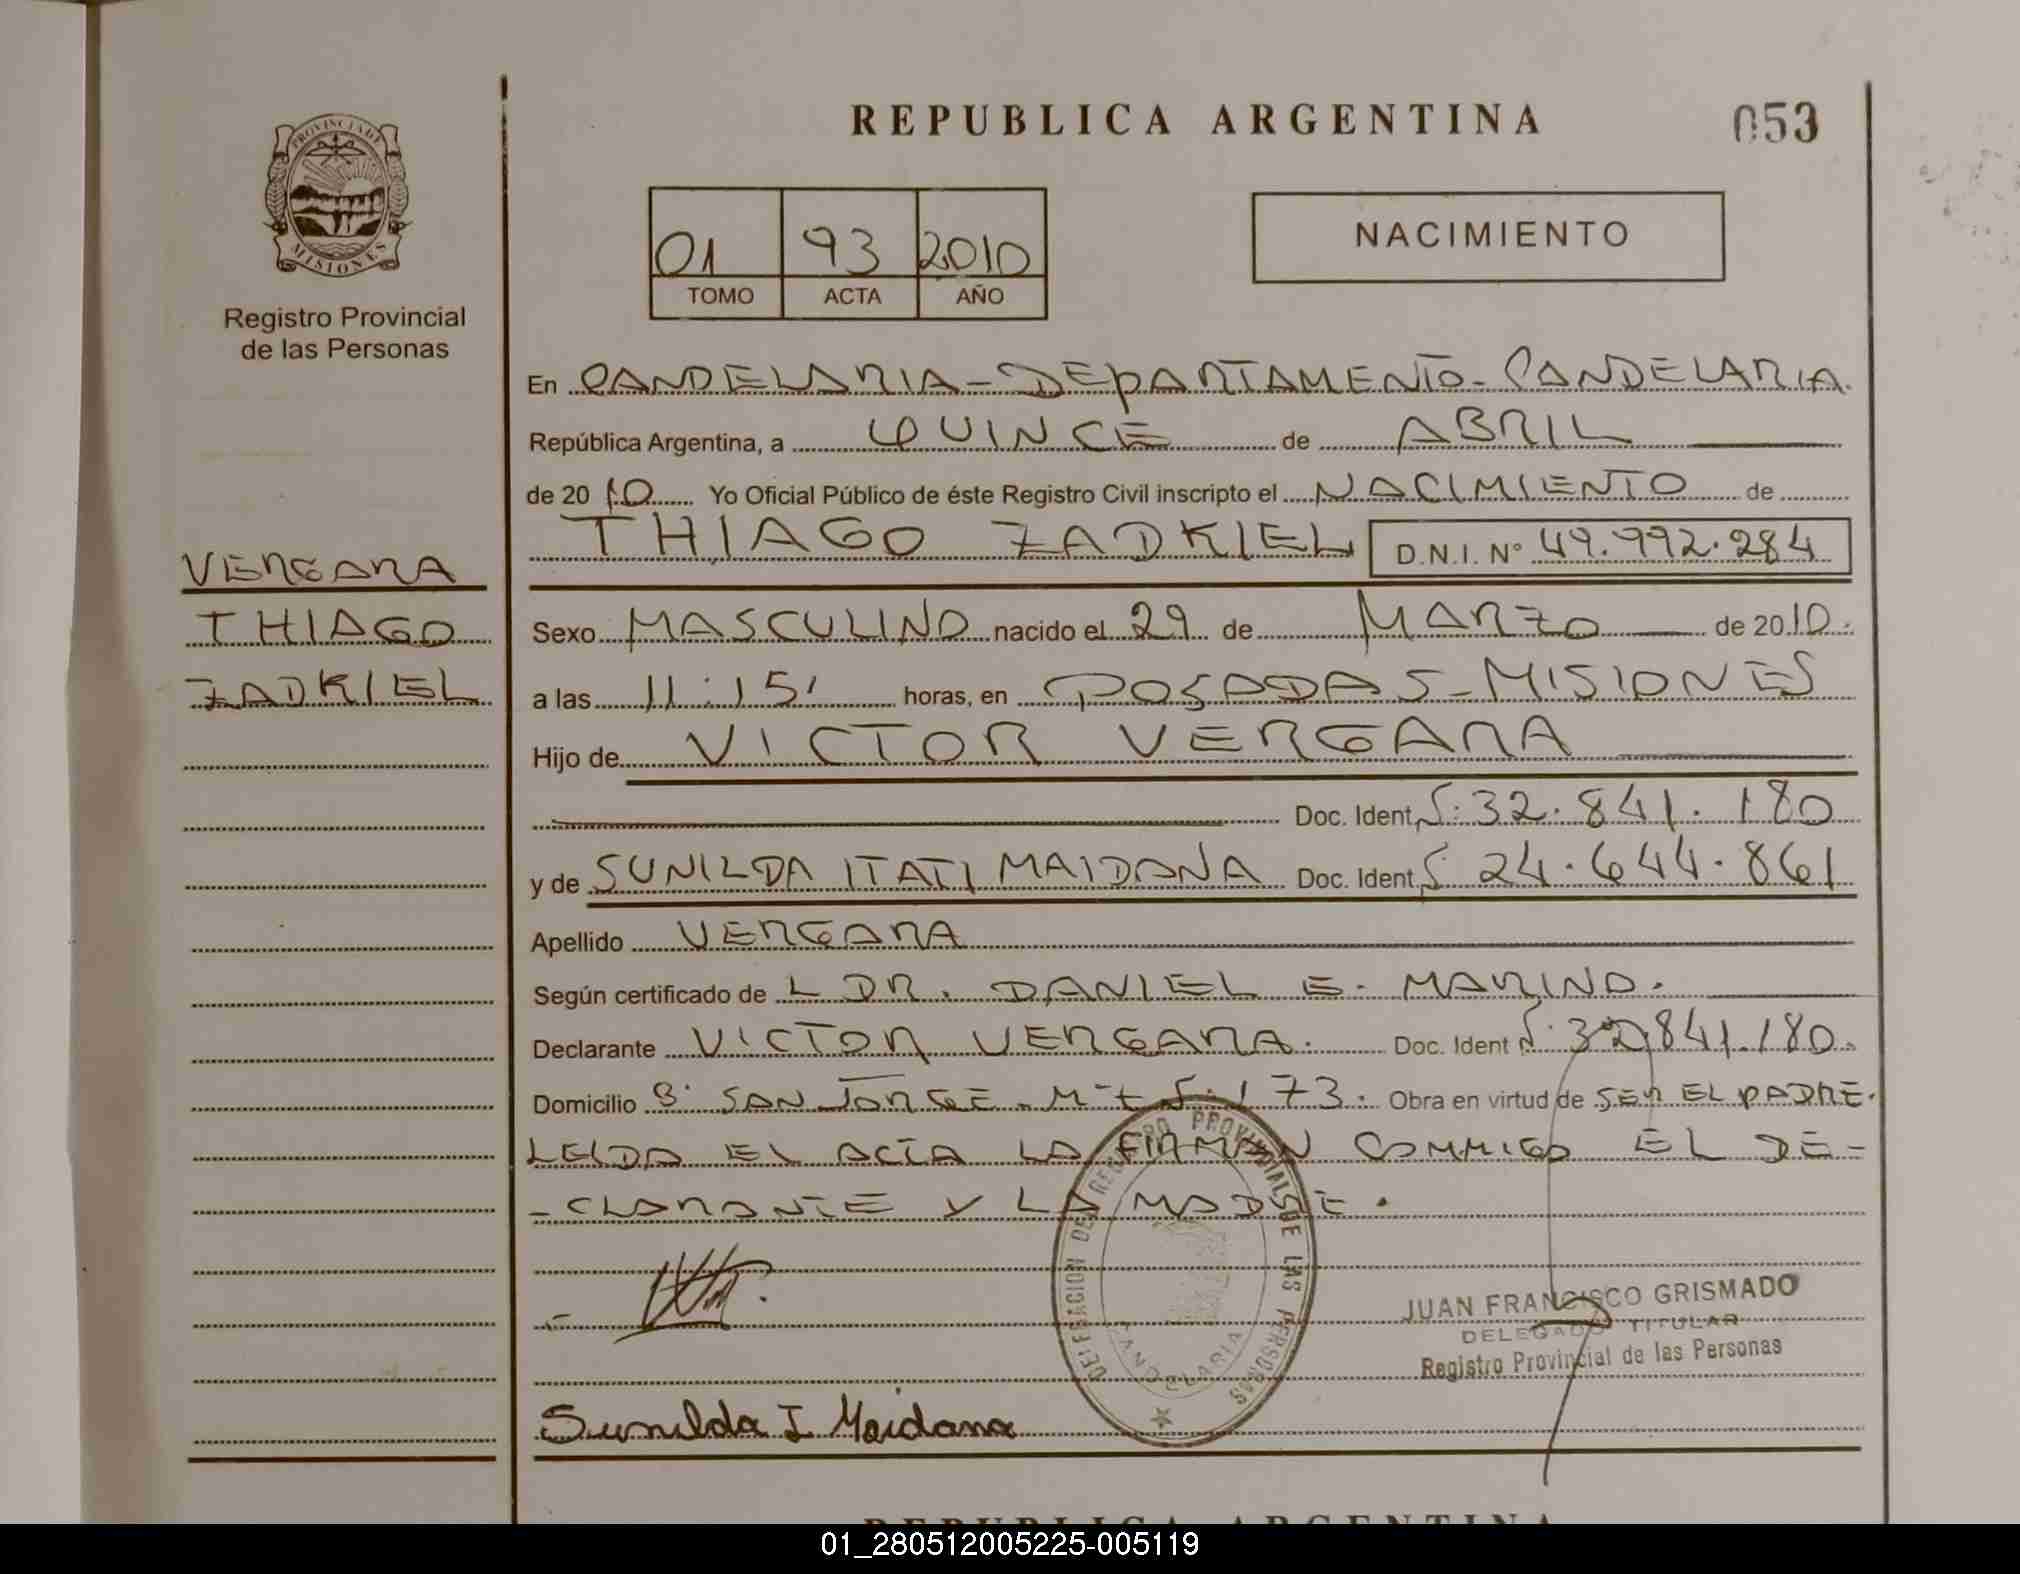 REPUBLICA ARGENTINA
053
PROVINCIA DE
MISIONES
Registro Provincial
de las Personas
01 93 2010
TOMO ACTA AÑO
NACIMIENTO
En CANDELARIA - DEPARTAMENTO - CANDELARIA.
República Argentina, a QUINCE de ABRIL
de 2010 Yo Oficial Público de éste Registro Civil inscripto el NACIMIENTO de
THIAGO ZADKIEL D.N.I. N° 49.992.284
VERGARA
THIAGO
ZADKIEL
Sexo MASCULINO nacido el 29 de MARZO de 2010.
a las 11:15' horas, en POSADAS - MISIONES
Hijo de VICTOR VERGARA
Doc. Ident. 32.841.180
y de SUNILDA ITATI MAIDANA Doc. Ident. 24.644.861
Apellido VERGARA
Según certificado de L DR. DANIEL E. MARINO.
Declarante VICTOR VERGARA. Doc. Ident 32.841.180.
Domicilio B° SAN JORGE - 173. Obra en virtud de SER EL PADRE.
LEIDA EL ACTA LA FIRMAN CONMIGO EL DE-
-CLARANTE Y LA MADRE.
DELEGACION DEL REGISTRO PROVINCIAL DE LAS PERSONAS
CANDELARIA
JUAN FRANCISCO GRISMADO
DELEGADO TITULAR
Registro Provincial de las Personas
Sunilda I Maidana
REPUBLICA ARGENTINA
01_280512005225-005119